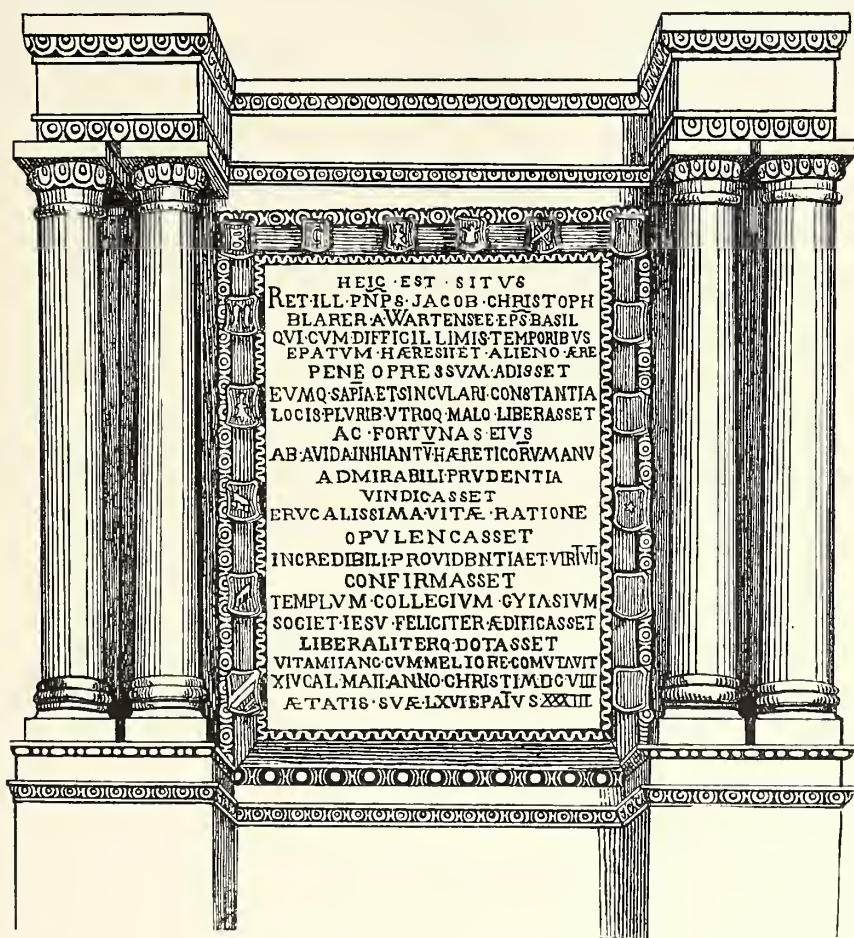 HEIC·EST·SITVS
RET·ILL·PN̄P̄S·JACOB·CHRISTOPH
BLARER·A·WARTENSEE·EP̄S·BASIL
QVI·CVM·DIFFICILLIMIS·TEMPORIBVS
EPATVM·HÆRESI·ET·ALIENO·ÆRE
PENE OPRESSVM·ADISSET
EVMQ·SAP̄IA·ET·SINCVLARI·CONSTANTIA
LOCIS·PLVRIB·VTROQ·MALO·LIBERASSET
AC·FORTVNAS·EIVS
AB·AVIDA·INHIANTV̄·HÆRETICORV̄MANV
ADMIRABILI·PRVDENTIA
VINDICASSET
ERVCALISSIMA·VITÆ·RATIONE
OPVLENCASSET
INCREDIBILI·PROVIDBNTIA·ET·VIRTVTI
CONFIRMASSET
TEMPLVM·COLLEGIVM·GYIASIVM
SOCIET·IESV·FELICITER·ÆDIFICASSET
LIBERALITERQ·DOTASSET
VITAM·IIANC·CVM·MELIORE·COMVTAVIT
XIV·CAL·MAII·ANNO·CHRISTI·MDCVIII
ÆTATIS·SVÆ·LXVI·EPAT̄VS·XXXIII